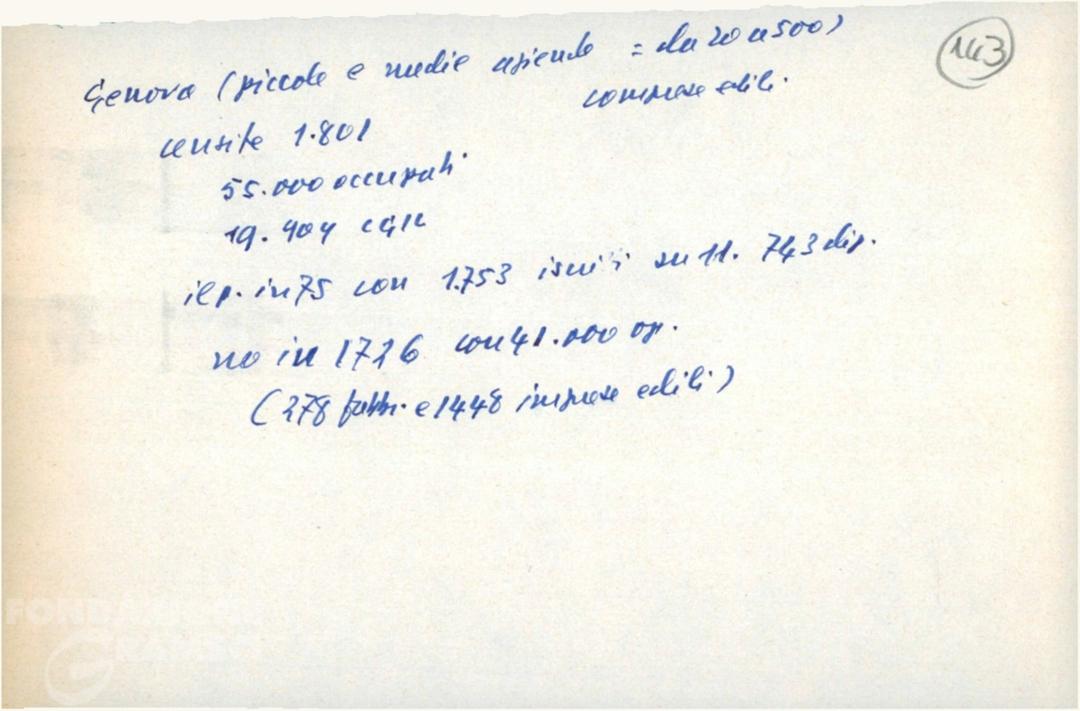 143
Genova (piccole e medie aziende = da 20 a 500)
comprese edili
censite 1.801
55.000 occupati
19.404 CGIL
il p. in 75 con 1.753 iscritti su 11.743 dip.
no in 1726 con 41.000 op.
(278 fabbr. e 1448 imprese edili)
FONDAZIONE
GRAMSCI